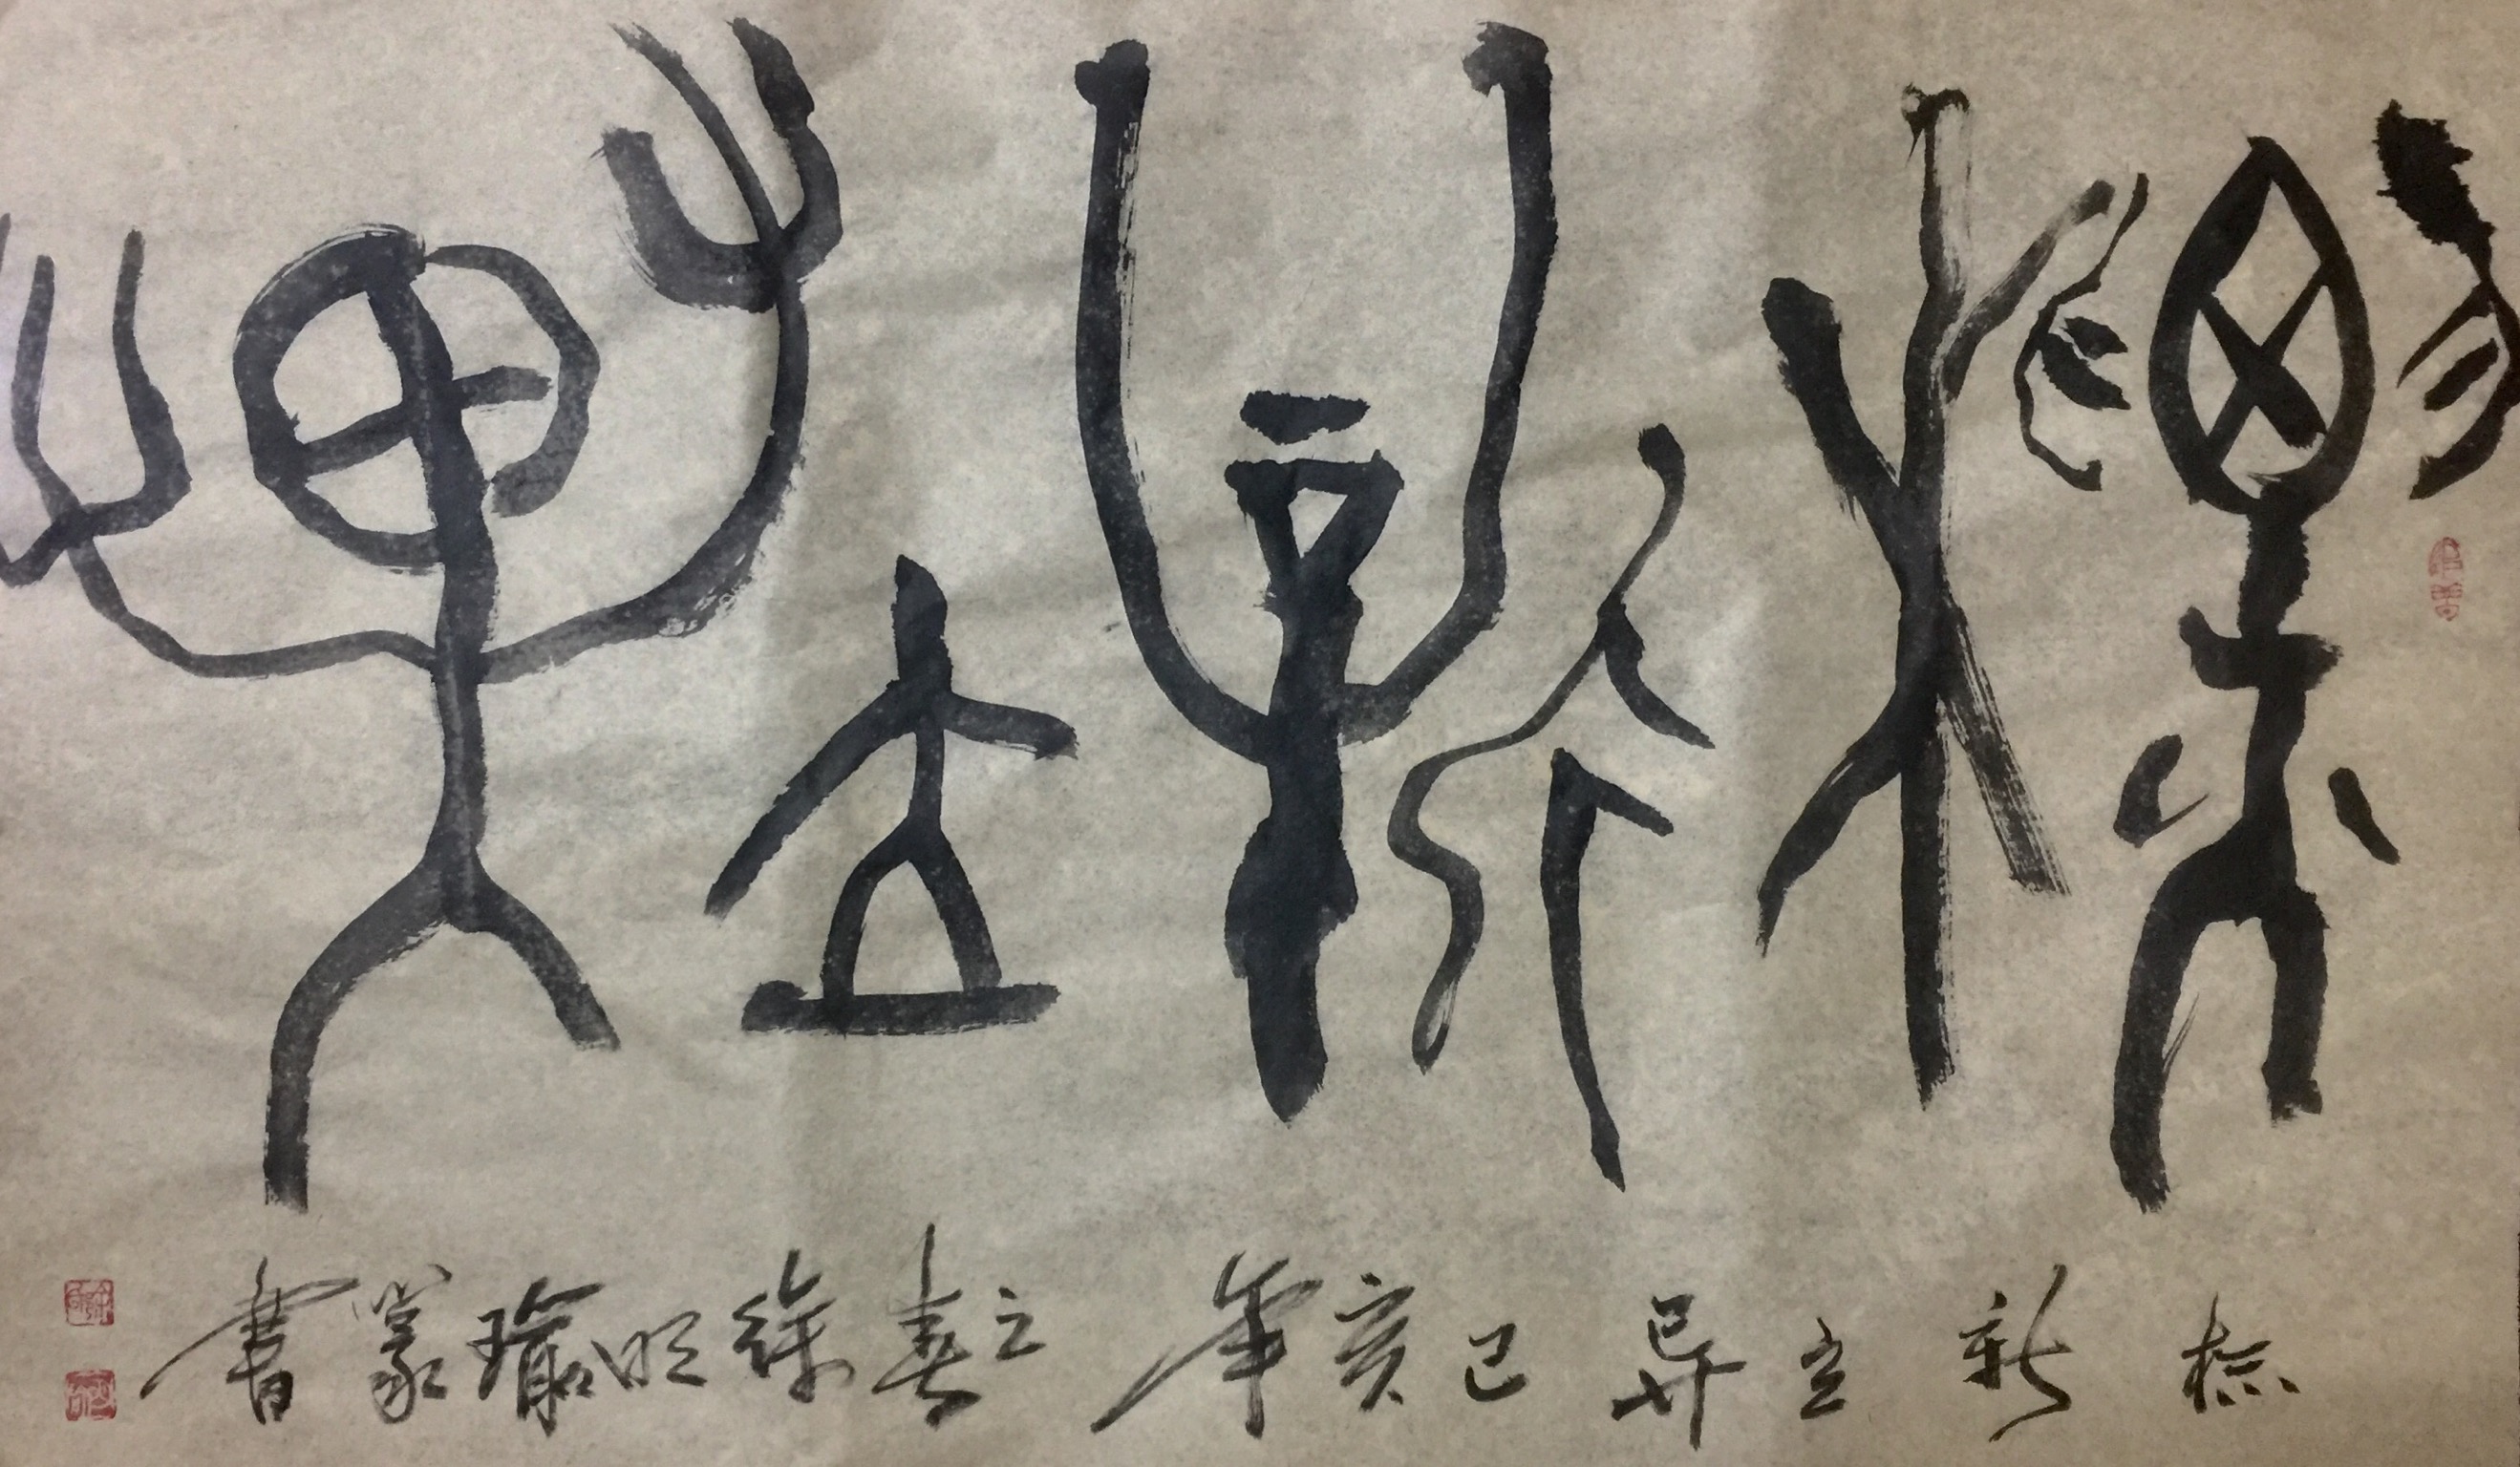 標新立異
标新立异己亥年之春徐明瑜篆書